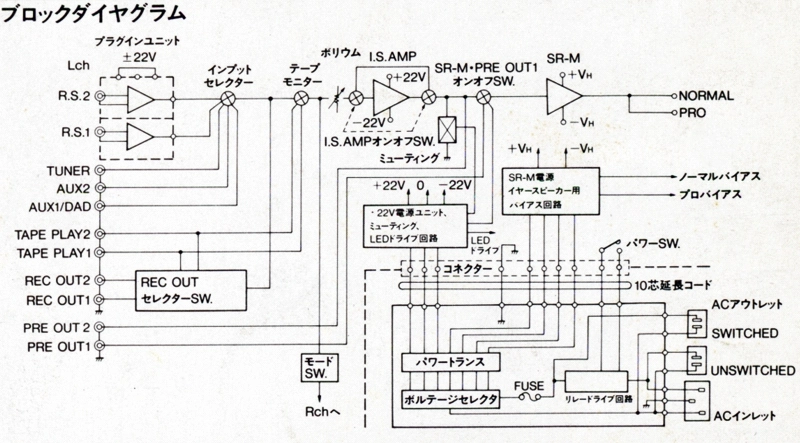 ブロックダイヤグラム
プラグインユニット
±22V
Lch
R.S.2
R.S.1
TUNER
AUX2
AUX1/DAD
TAPE PLAY2
TAPE PLAY1
REC OUT2
REC OUT1
PRE OUT 2
PRE OUT1
REC OUT
セレクターSW.
インプット
セレクター
テープ
モニター
ボリウム
I.S.AMP
+22V
−22V
I.S.AMPオンオフSW.
ミューティング
SR-M・PRE OUT1
オンオフSW.
SR-M
+VH
−VH
NORMAL
PRO
+VH
−VH
SR-M電源
イヤースピーカー用
バイアス回路
ノーマルバイアス
プロバイアス
+22V 0 −22V
・22V電源ユニット、
ミューティング、
LEDドライブ回路
LED
ドライブ
パワーSW.
コネクター
10芯延長コード
パワートランス
ボルテージセレクタ
FUSE
リレードライブ回路
ACアウトレット
SWITCHED
UNSWITCHED
ACインレット
モード
SW.
Rchへ